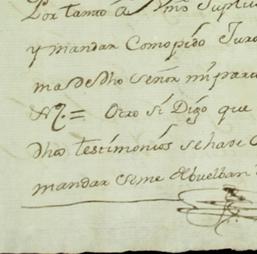 Por tanto a Vmo Suplic
y mandar Como pido Juro
mas de dho Señor mi parte
Otro sí Digo que
dhos testimonios se ha de
mandar se me debuelban